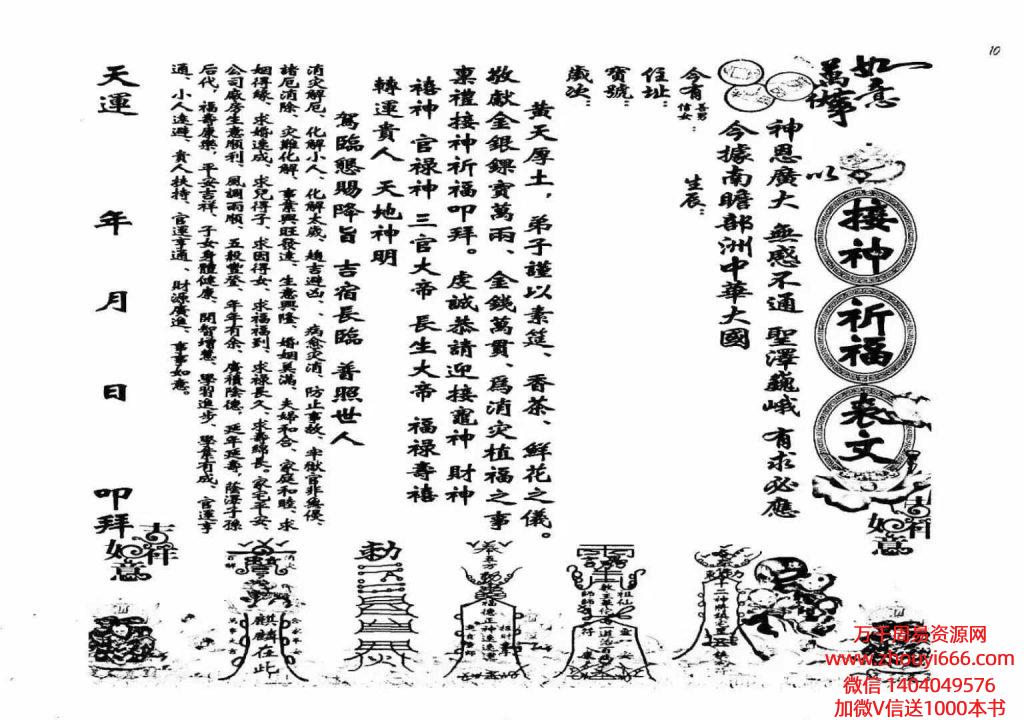 10
如意
萬事
以
接神
祈福
表文
神恩廣大 無感不通 聖澤巍峨 有求必應
今據南瞻部洲中華大國
今有善男信女： 生辰：
住址：
寶號：
歲次：
黃天厚土，弟子謹以素筵、香茶、鮮花之儀。
敬獻金銀錁寶萬兩、金錢萬貫、爲消灾植福之事
稟禮接神祈福叩拜。虔誠恭請迎接竈神 財神
禧神 官祿神 三官大帝 長生大帝 福祿壽禧
轉運貴人 天地神明
駕臨懇賜降旨 吉宿長臨 普照世人
消灾解厄、化解小人、化解太歲、趨吉避凶、病愈灾消、防止事故、牢獄官非無侵、
諸厄消除、灾難化解、事業興旺發達、生意興隆、婚姻美滿、夫婦和合、家庭和睦、求
姻得緣、求婚速成、求兒得子、求因得女、求福福到、求祿長久、求壽綿長。家宅平安、
公司廠房生意順利、風調雨順、五穀豐登、年年有余、廣積陰德、延年延壽，蔭澤子孫
后代，福壽康樂，平安吉祥，子女身體健康、開智增慧、學習進步、學業有成、官運亨
通、小人遠避、貴人扶持、官運亨通、財源廣進、事事如意。
天運 年 月 日 叩拜
吉祥
如意
吉祥
如意
麒麟在此
敕
万千周易资源网
www.zhouyi666.com
微信 1404049576
加微V信送1000本书